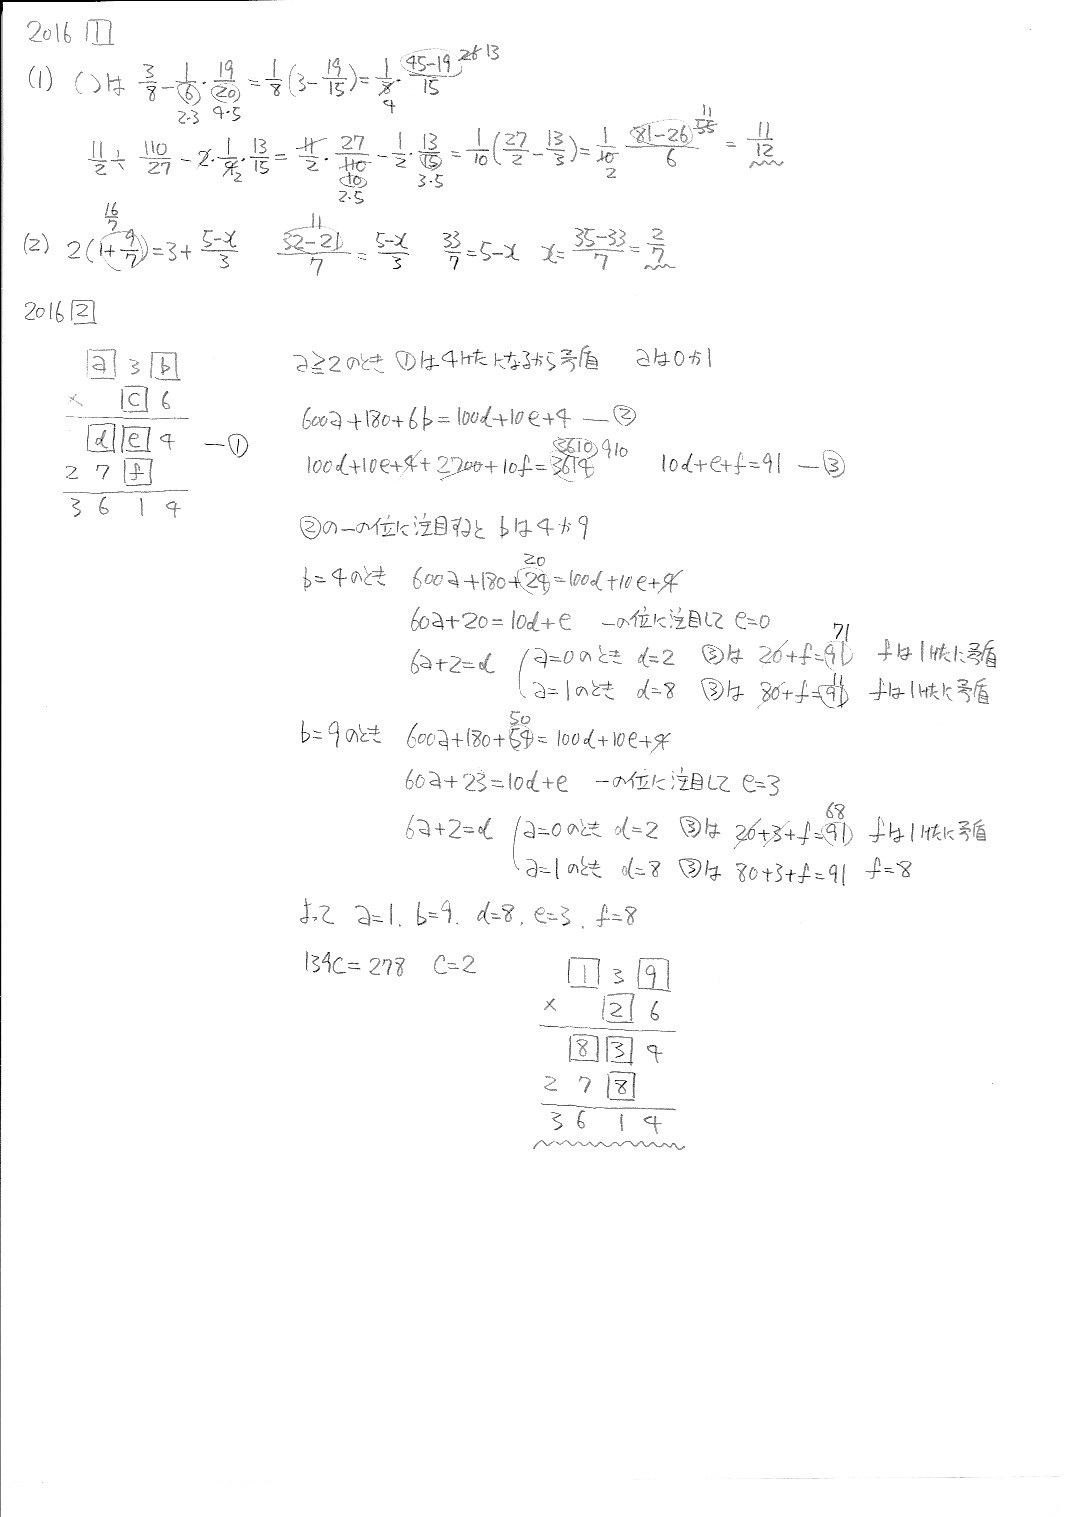 2016 1
(1) ( )は 3/8 - 1/6 · 19/20 = 1/8 (3 - 19/15) = 1/8 · (45-19)/15 26 13
2·3 4·5 4
11/2 ÷ 110/27 - 2 · 1/4 · 13/15 = 11/2 · 27/110 - 1/2 · 13/15 = 1/10 (27/2 - 13/3) = 1/10 · (81-26)/6 = 11/12
2 10 2·5 3·5 2 55 11
(2) 2(1+9/7)=3+(5-x)/3 (32-21)/7=(5-x)/3 33/7=5-x x=(35-33)/7=2/7
16/7 11
2016 2
a 3 b
× c 6
d e 4 ―①
2 7 f
3 6 1 4
a≧2のとき ①は4けたになるから矛盾 aは0か1
600a+180+6b=100d+10e+4 ―②
100d+10e+4+2700+10f=3614 3610 910 10d+e+f=91 ―③
②の一の位に注目すると bは4か9
b=4のとき 600a+180+24=100d+10e+4
20
60a+20=10d+e 一の位に注目して e=0
6a+2=d a=0のとき d=2 ③は 20+f=91 71 fは1けたに矛盾
a=1のとき d=8 ③は 80+f=91 11 fは1けたに矛盾
b=9のとき 600a+180+54=100d+10e+4
50
60a+23=10d+e 一の位に注目して e=3
6a+2=d a=0のとき d=2 ③は 20+3+f=91 68 fは1けたに矛盾
a=1のとき d=8 ③は 80+3+f=91 f=8
よって a=1, b=9, d=8, e=3, f=8
139c=278 c=2
1 3 9
× 2 6
8 3 4
2 7 8
3 6 1 4